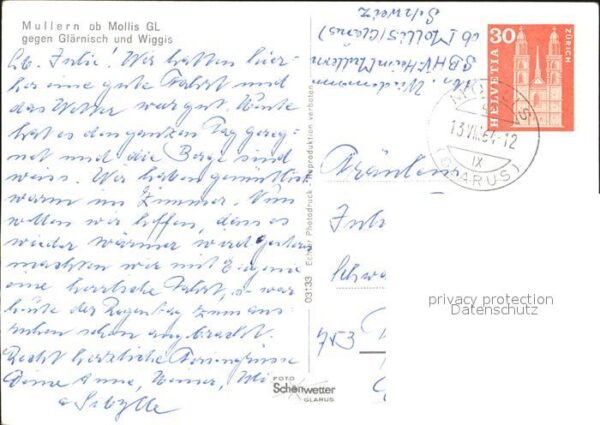 Mullern ob Mollis GL
gegen Glärnisch und Wiggis
Lb. Julie! Wir hatten hier-
her eine gute Fahrt und
das Wetter war gut. Heute
hat es den ganzen Tag gereg-
net und die Berge sind
weiss. Wir haben gemütlich
warm im Zimmer. Nun
wollen wir hoffen, dass es
wieder wärmer wird gestern
machten wir mit Eugenie
eine herrliche Fahrt, so war
heute der Regentag zum aus-
ruhen schon angebracht.
Recht herzliche Feriengrüsse
Deine Anna, Werner,
& Sibylle
Abs. Wiedemann
SBHV-Heim Mullern
ob Mollis (Glarus)
Schweiz
30
HELVETIA
ZÜRICH
MOLLIS
13.VIII.64-12
IX
(GLARUS)
Fräulein
Julie
Schwa
753
03133 Echter Photodruck - Reproduktion verboten
privacy protection
Datenschutz
FOTO
Schönwetter
GLARUS